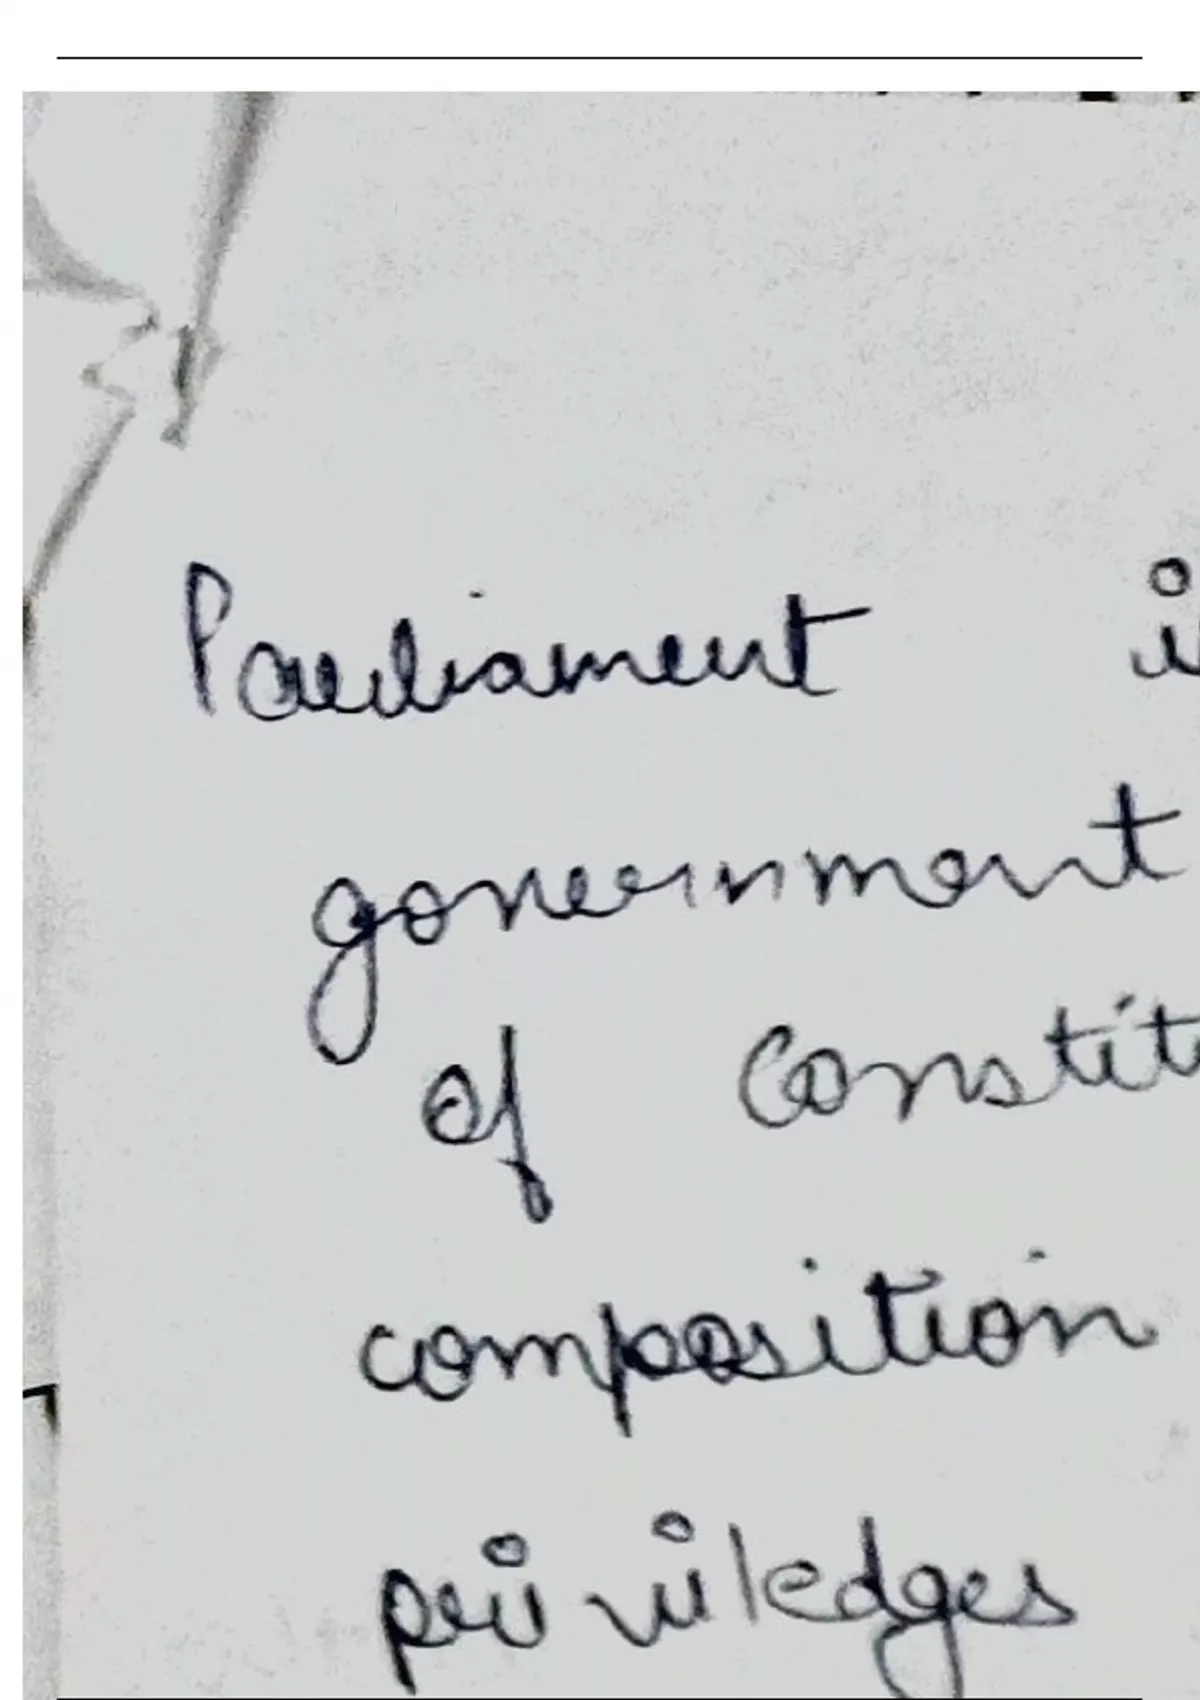 Parliament i
government
of Constit
composition
priviledges